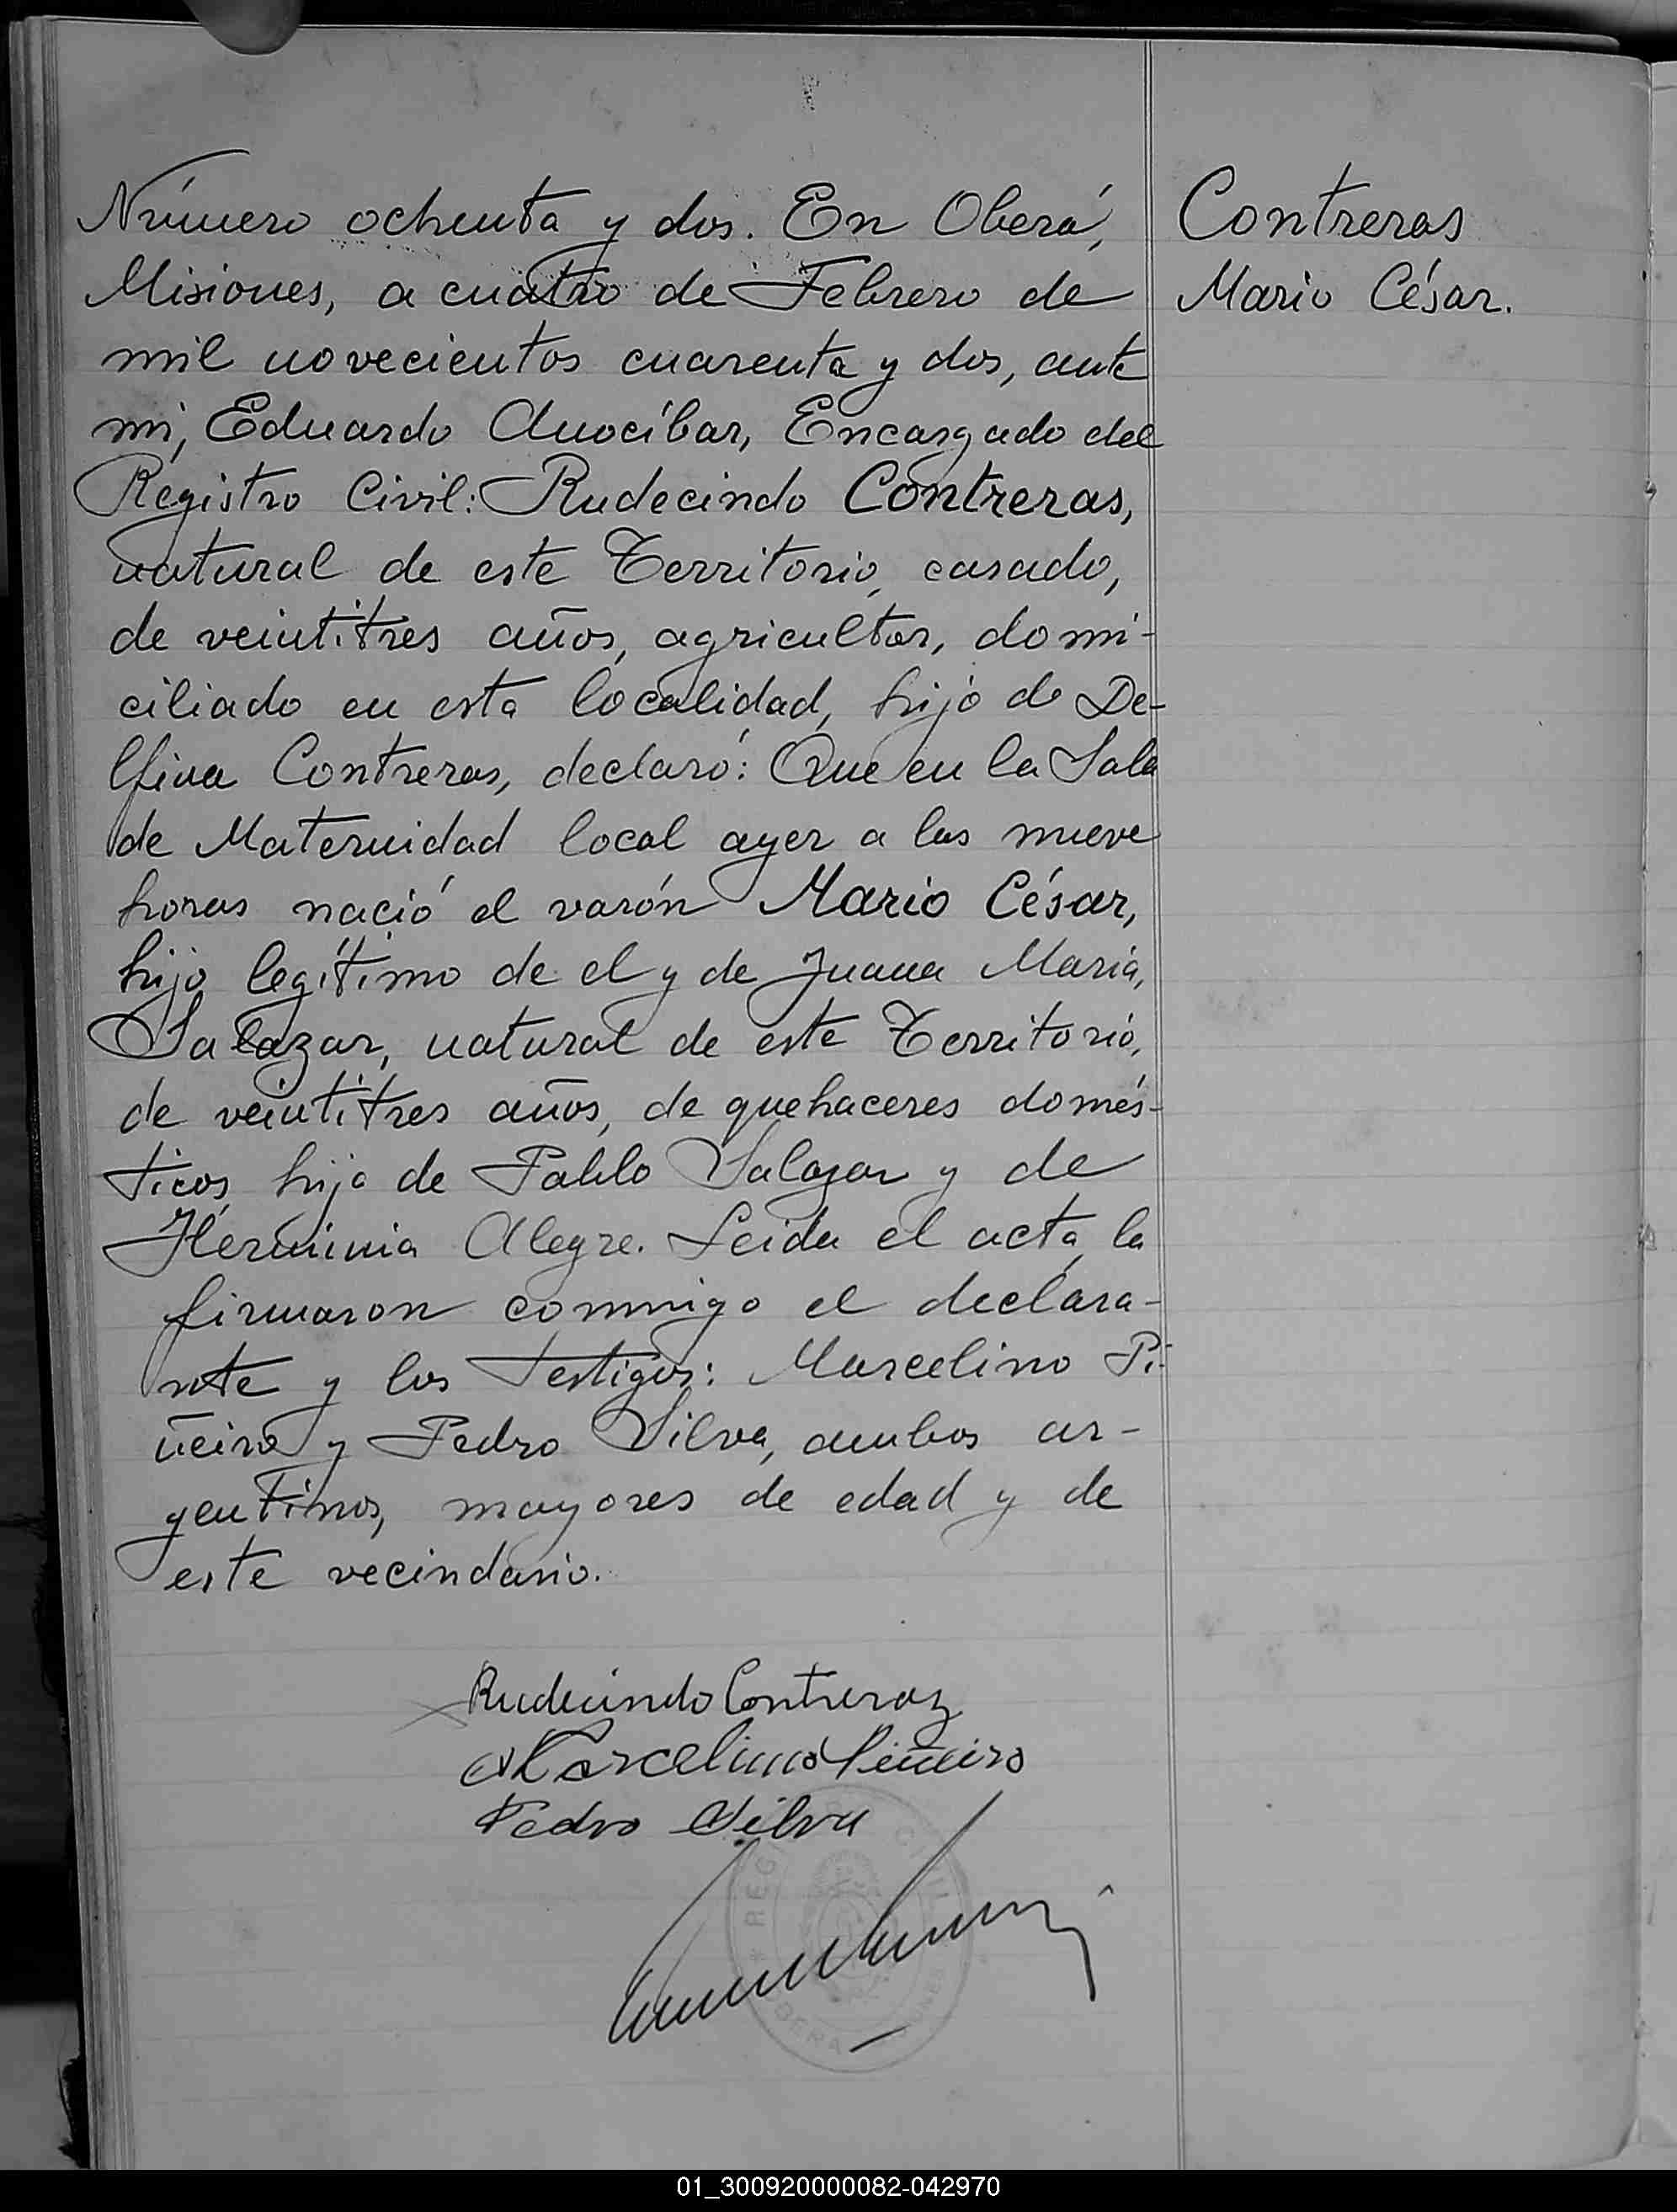 Número ochenta y dos. En Oberá,
Misiones, a cuatro de Febrero de
mil novecientos cuarenta y dos, ante
mi, Eduardo Anocíbar, Encargado del
Registro Civil: Rudecindo Contreras,
natural de este Territorio, casado,
de veintitres años, agricultor, domi-
ciliado en esta localidad, hijo de De-
lfina Contreras, declaró: Que en la Sala
de Maternidad local ayer a las nueve
horas nació el varón Mario César,
hijo legítimo de el y de Juana María,
Salazar, natural de este Territorio,
de veintitres años, de quehaceres domés-
ticos, hija de Pablo Salazar y de
Herminia Alegre. Leida el acta, la
firmaron conmigo el declara-
nte y los testigos: Marcelino Pi-
ñeiro y Pedro Silva, ambos ar-
gentinos, mayores de edad y de
este vecindario.
Contreras
Mario César.
Rudecindo Contreraz
Marcelino Piñeiro
Pedro Silva
REGISTRO CIVIL
OBERA
01_300920000082-042970